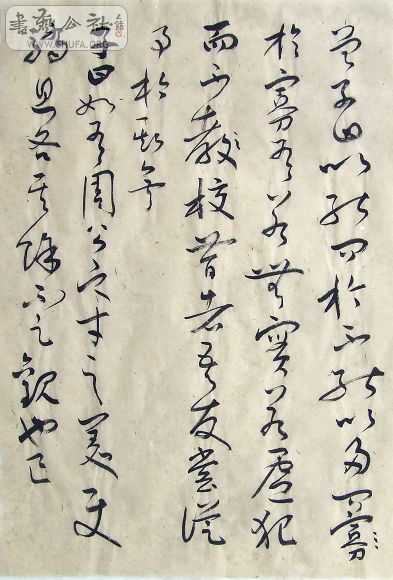 曾子曰以能問於不能以多問寡
於寡有若無實若虛犯
而不教校昔者吾友嘗從
事於斯矣
子曰如有周公之才之美使
驕且吝其餘不足觀也已
書藝公社
WWW.SHUFA.ORG